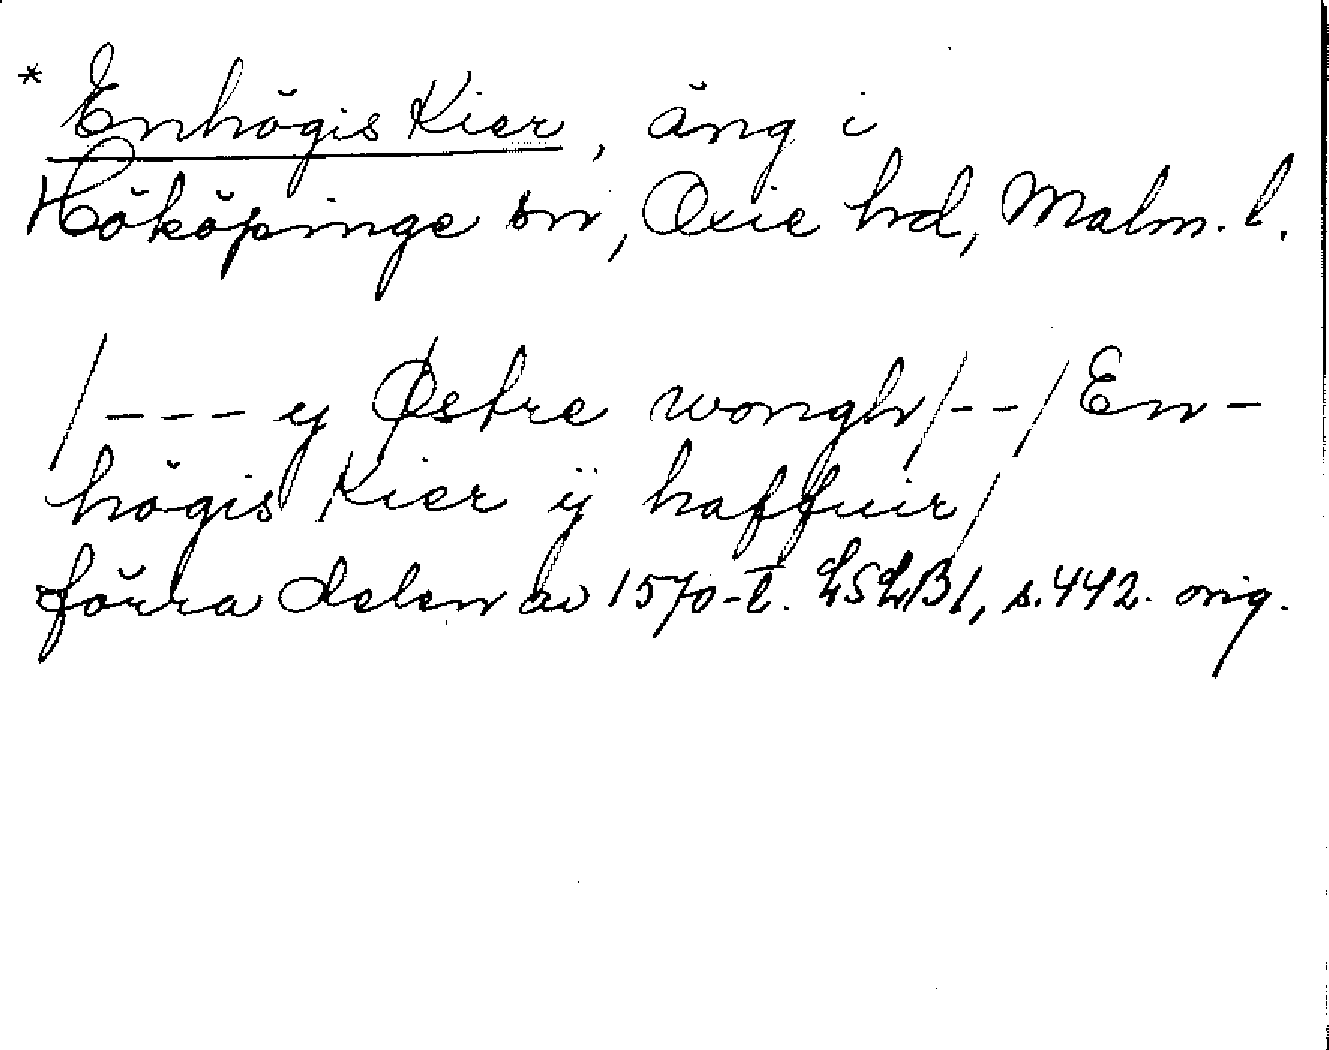 * Enhögis Kier, äng i
Hököpinge sn, Oxie hd, Malm. l.
/--- y Østre wongh/--/ En-
högis Kier ÿ haffuir/
förra delen av 1570-t. LSLB1, s. 442. orig.